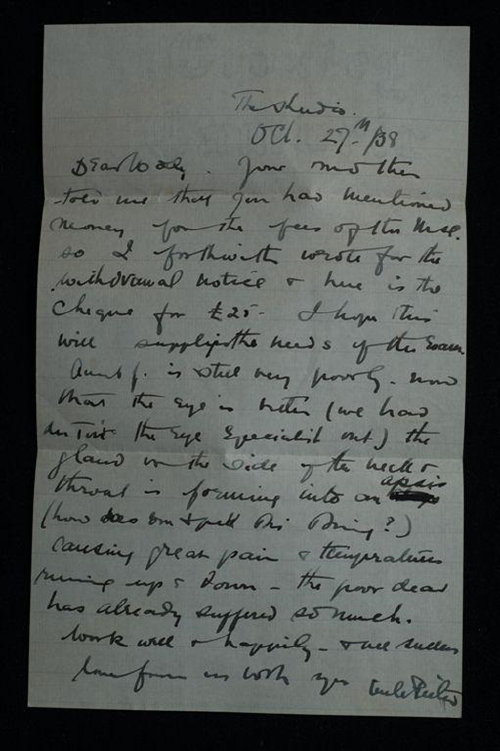 The Studio.
Oct. 27th/38
Dear Wo . Your mother
told me that you had mentioned
money for the fees of the
so I forthwith wrote for the
withdrawal notice & here is the
cheque for £25- I hope this
will supply the needs of the Exam
Aunt J. is still very poorly - now
that the eye is better (we had
the Eye Specialist out) the
gland on the side of the neck &
throat is forming into an apsis
(how does one spell this thing?)
causing great pain & temperatures
running up & down - the poor dear
has already suffered so much.
Work well & happily - & all success
love from us both yrs Uncle